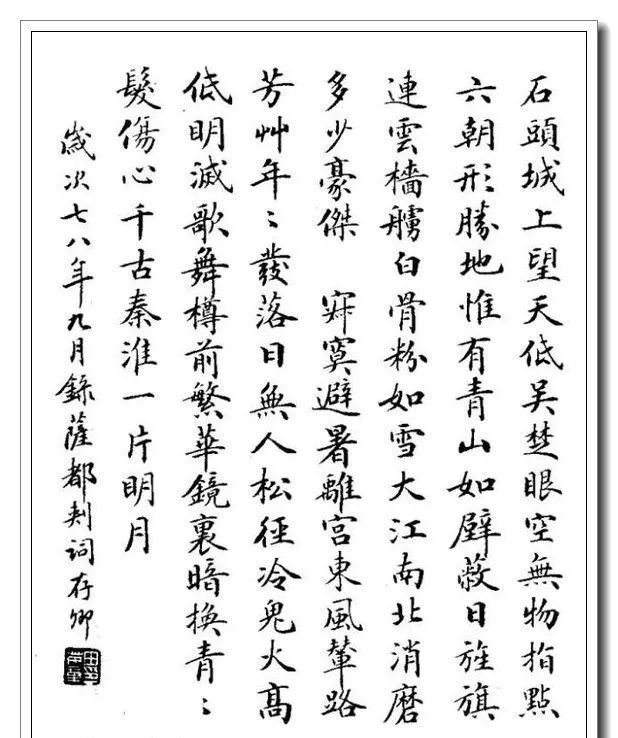 石頭城上望天低吴楚眼空無物指點
六朝形勝地惟有青山如壁蔽日旌旗
連雲檣艣白骨粉如雪大江南北消磨
多少豪傑 寂寞避暑離宮東風輦路
芳艸年〻發落日無人松徑冷鬼火高
低明滅歌舞樽前繁華鏡裏暗換青〻
髮傷心千古秦淮一片明月
歲次七八年九月錄薩都剌詞存卿